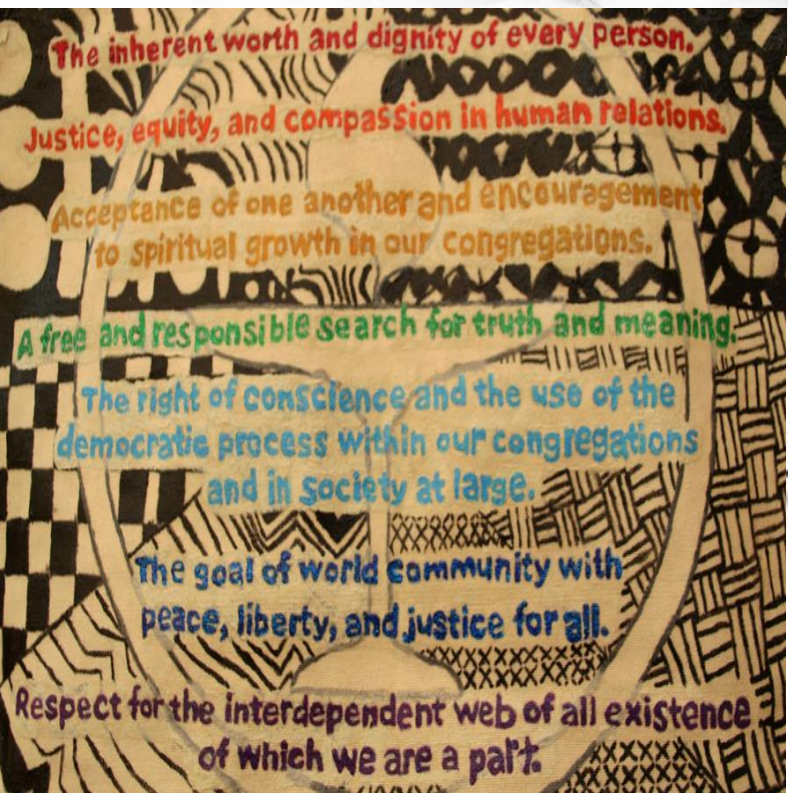 The inherent worth and dignity of every person.
Justice, equity, and compassion in human relations.
Acceptance of one another and encouragement
to spiritual growth in our congregations.
A free and responsible search for truth and meaning.
The right of conscience and the use of the
democratic process within our congregations
and in society at large.
The goal of world community with
peace, liberty, and justice for all.
Respect for the interdependent web of all existence
of which we are a part.